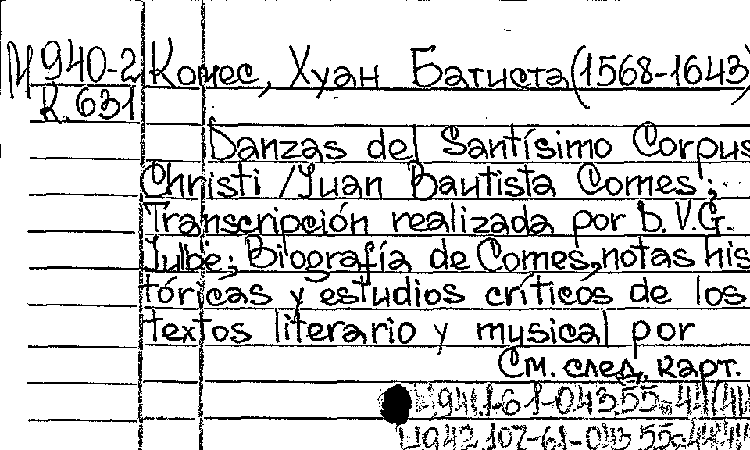 М 940-2 Комес, Хуан Батиста (1568-1643)
К. 631
Danzas del Santísimo Corpus
Christi / Juan Bautista Comes ;
Transcripción realizada por D. V. G.
Julbe; Biografía de Comes, notas his
tóricas y estudios críticos de los
textos literario y musical por
См. след. карт.